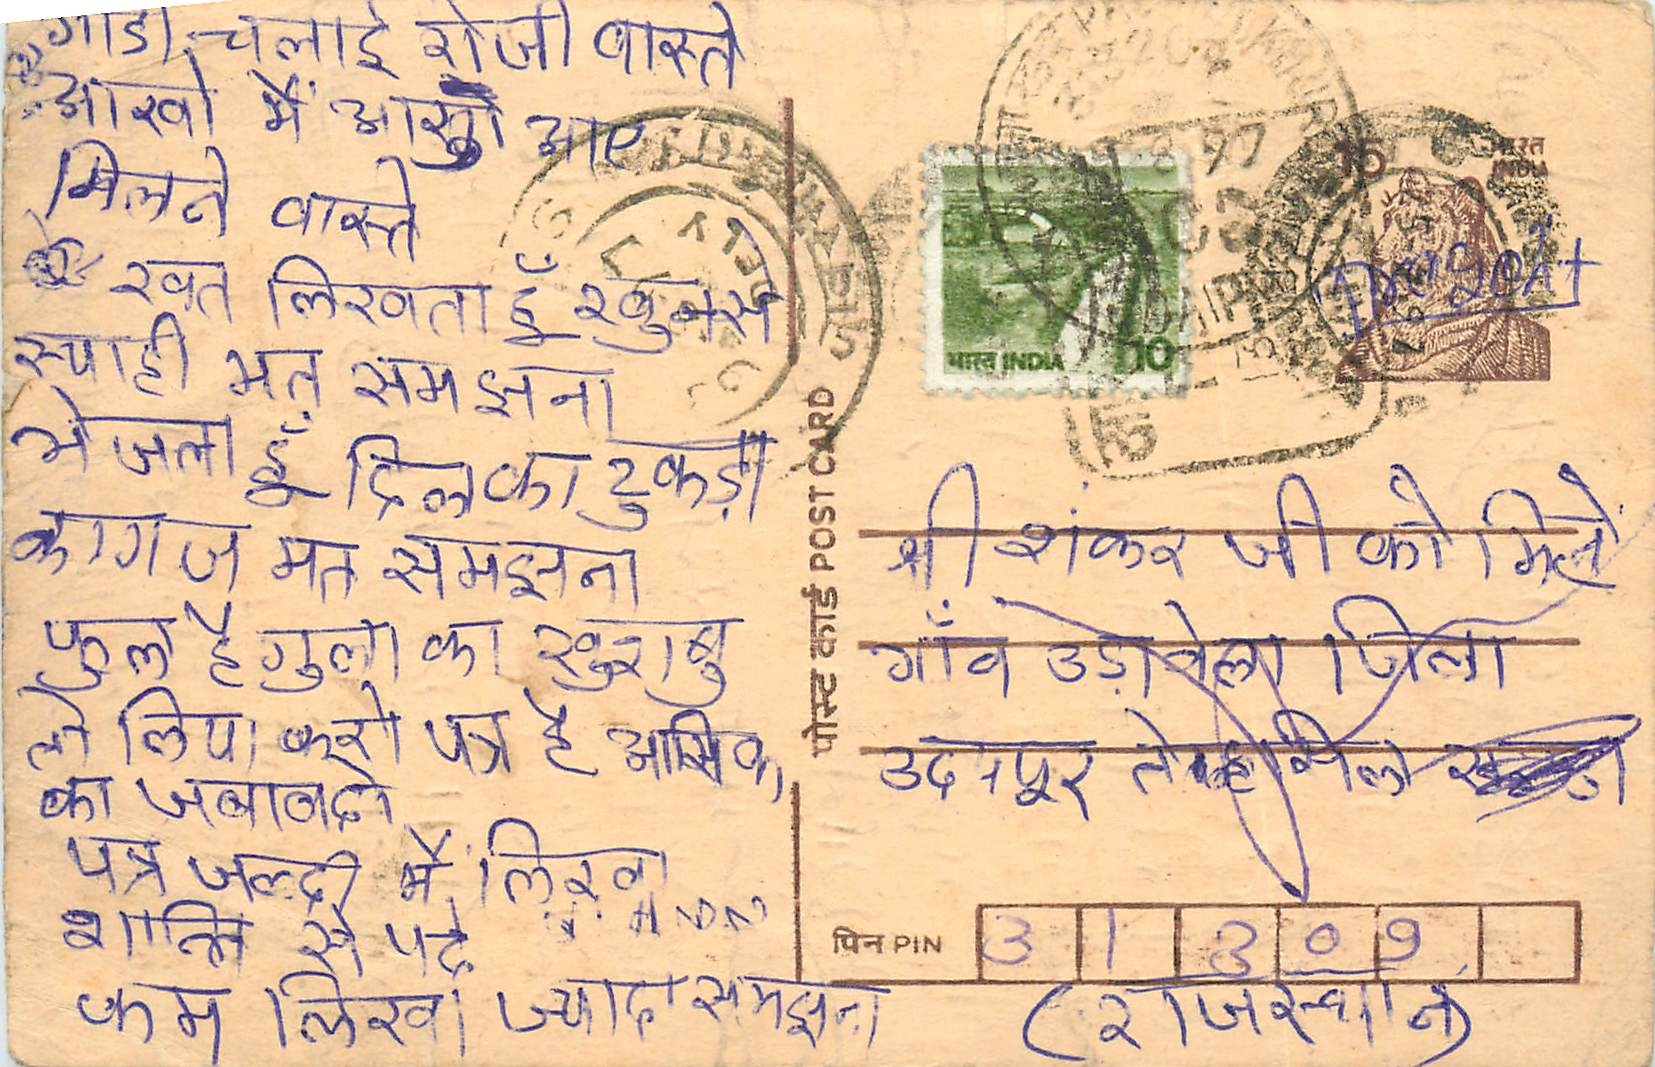 गाडी चलाई रोजी वास्ते
आखो मैं आसु आए
मिलने वास्ते
खत लिखता हूँ खुन से
स्याही मत समझना
भेजता हूँ दिल का टुकड़ा
कागज मत समझना
फुल है गुला का खुशबु
ले लिया करो पत्र है आसिक
का जबाब दो
पत्र जल्दी मैं लिखा
शान्ति से पढे
कम लिखा ज्यादा समझना
पोस्ट कार्ड POST CARD
भारत INDIA 10
15 भारत
INDIA
श्री शंकर जी को मिले
गाँव उड़ावेला जिला
उदयपूर
पिन PIN 3 1 3 0 9
(राजस्थान)